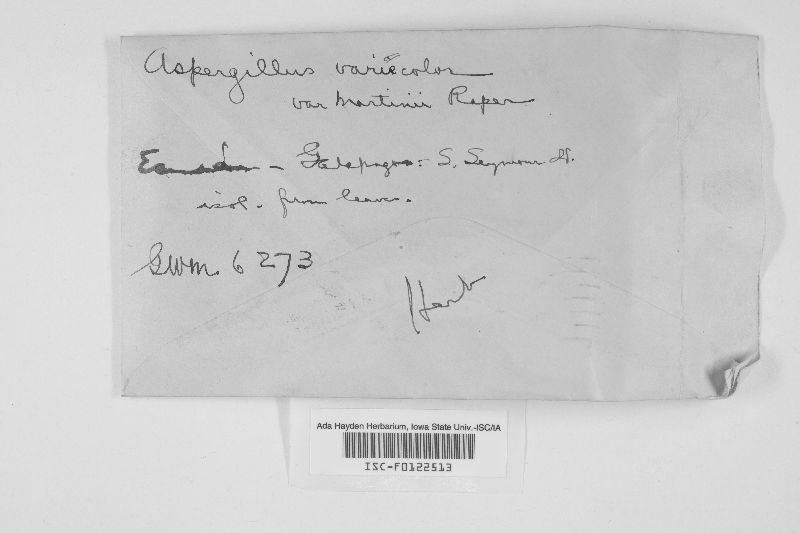 Aspergillus variecolor
var Martinii Raper
Ecuador - Galapagos: S. Seymour Is.
isol. from leaves.
GWM. 6273
Herb
Ada Hayden Herbarium, Iowa State Univ.-ISC/IA
ISC-F0122513